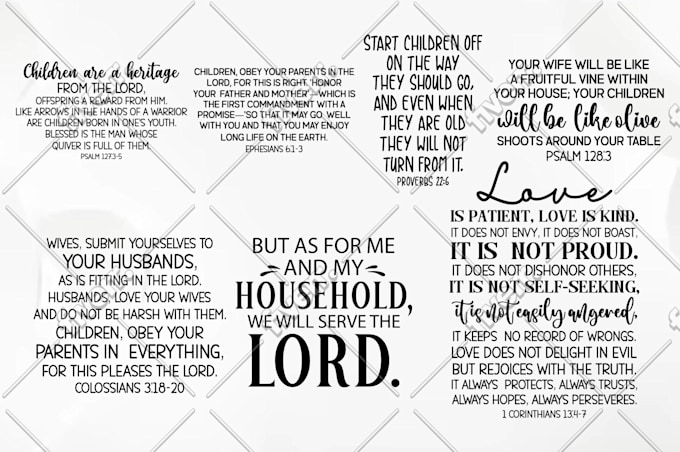 Children are a heritage
FROM THE LORD,
OFFSPRING A REWARD FROM HIM.
LIKE ARROWS IN THE HANDS OF A WARRIOR
ARE CHILDREN BORN IN ONE'S YOUTH.
BLESSED IS THE MAN WHOSE
QUIVER IS FULL OF THEM.
PSALM 127:3-5
CHILDREN, OBEY YOUR PARENTS IN THE
LORD, FOR THIS IS RIGHT. 'HONOR
YOUR FATHER AND MOTHER'-WHICH IS
THE FIRST COMMANDMENT WITH A
PROMISE-'SO THAT IT MAY GO, WELL
WITH YOU AND THAT YOU MAY ENJOY
LONG LIFE ON THE EARTH.
EPHESIANS 6:1-3
START CHILDREN OFF
ON THE WAY
THEY SHOULD GO,
AND EVEN WHEN
THEY ARE OLD
THEY WILL NOT
TURN FROM IT.
PROVERBS 22:6
YOUR WIFE WILL BE LIKE
A FRUITFUL VINE WITHIN
YOUR HOUSE; YOUR CHILDREN
will be like olive
SHOOTS AROUND YOUR TABLE
PSALM 128:3
WIVES, SUBMIT YOURSELVES TO
YOUR HUSBANDS,
AS IS FITTING IN THE LORD.
HUSBANDS, LOVE YOUR WIVES
AND DO NOT BE HARSH WITH THEM.
CHILDREN, OBEY YOUR
PARENTS IN EVERYTHING,
FOR THIS PLEASES THE LORD.
COLOSSIANS 3:18-20
BUT AS FOR ME
AND MY
HOUSEHOLD,
WE WILL SERVE THE
LORD.
Love
IS PATIENT, LOVE IS KIND.
IT DOES NOT ENVY, IT DOES NOT BOAST,
IT IS NOT PROUD.
IT DOES NOT DISHONOR OTHERS,
IT IS NOT SELF-SEEKING,
it is not easily angered,
IT KEEPS NO RECORD OF WRONGS.
LOVE DOES NOT DELIGHT IN EVIL
BUT REJOICES WITH THE TRUTH.
IT ALWAYS PROTECTS, ALWAYS TRUSTS,
ALWAYS HOPES, ALWAYS PERSEVERES.
1 CORINTHIANS 13:4-7
fiverr